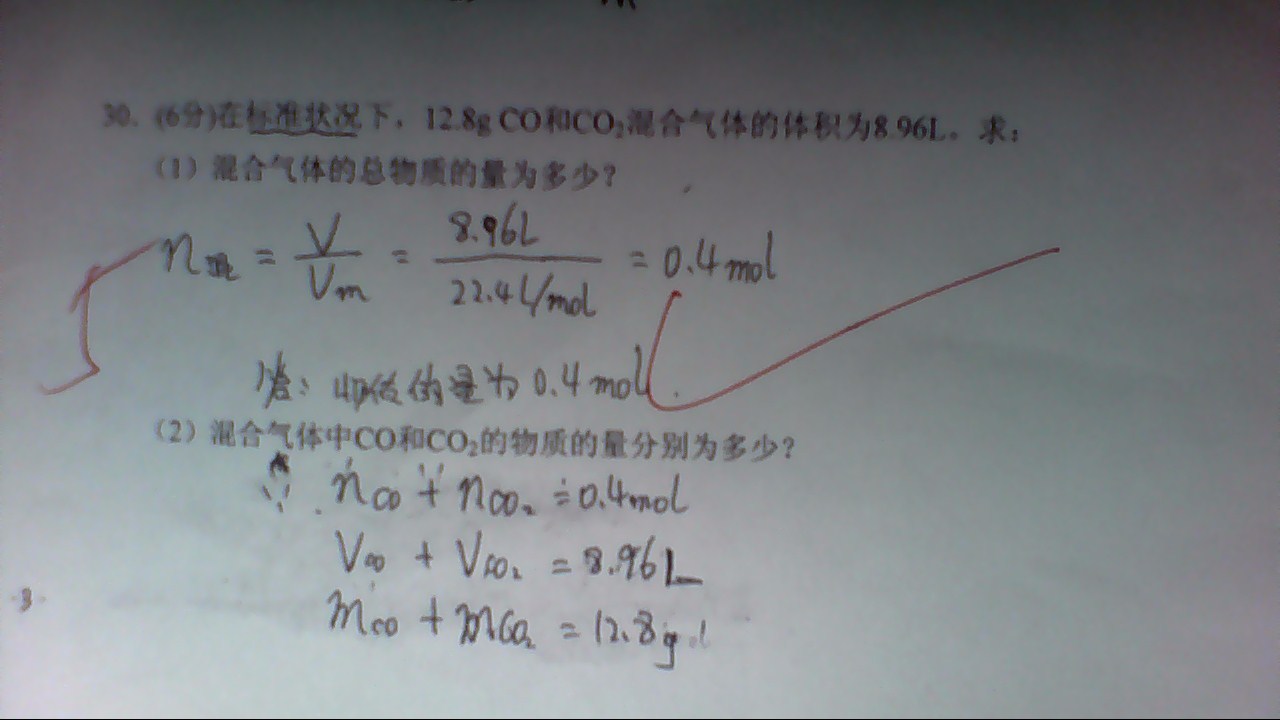 30. (6分)在标准状况下，12.8g CO和CO₂混合气体的体积为8.96L。求：
(1) 混合气体的总物质的量为多少？
n混 = V/Vm = 8.96L/22.4L/mol = 0.4mol
的量为0.4mol.
(2) 混合气体中CO和CO₂的物质的量分别为多少？
nCO + nCO₂ = 0.4mol
VCO + VCO₂ = 8.96L
mCO + mCO₂ = 12.8g
3